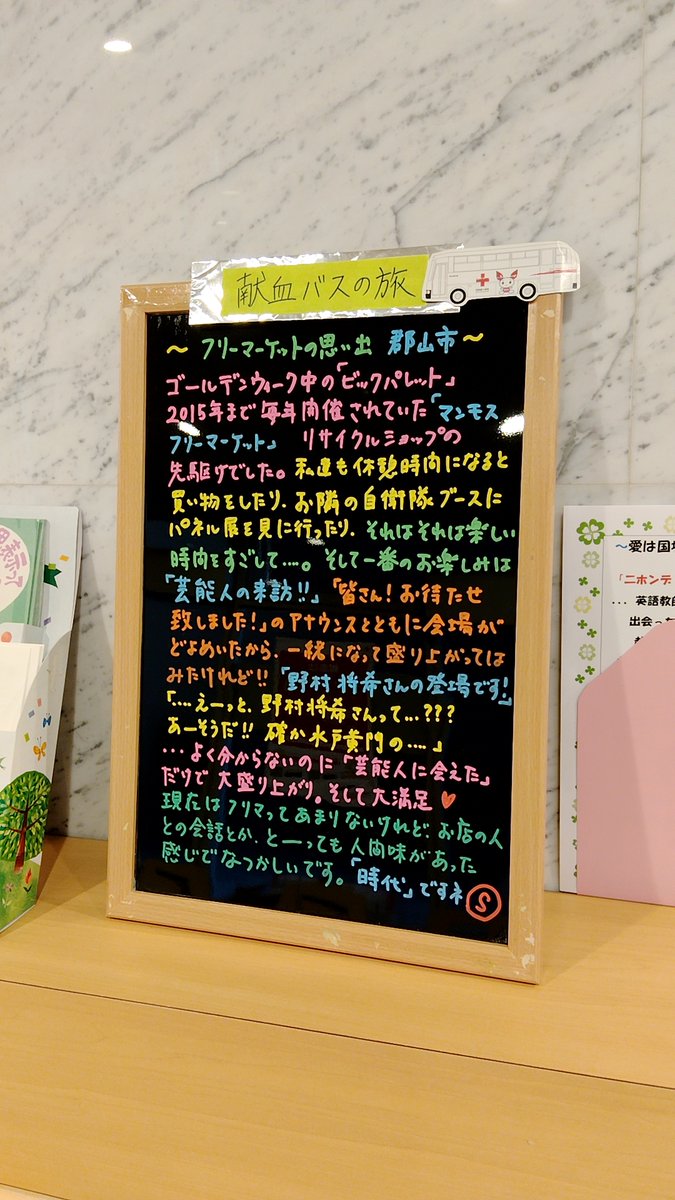 献血バスの旅
～フリーマーケットの思い出 郡山市～
ゴールデンウィーク中の「ビックパレット」
2015年まで毎年開催されていた「マンモス
フリーマーケット」 リサイクルショップの
先駆けでした。私達も休憩時間になると
買い物をしたり、お隣の自衛隊ブースに
パネル展を見に行ったり、それはそれは楽しい
時間をすごして....。そして一番のお楽しみは
「芸能人の来訪!!」「皆さん!お待たせ
致しました!」のアナウンスとともに会場が
どよめいたから、一緒になって盛り上がっては
みたけれど!!「野村将希さんの登場です!」
「....えーっと、野村将希さんって...???
あーそうだ!! 確か水戸黄門の....」
...よく分からないのに「芸能人に会えた」
だけで大盛り上がり。そして大満足♥
現在はフリマってあまりないけれど、お店の人
との会話とか、とーっても人間味があった
感じでなつかしいです。「時代」ですネ Ⓢ
～愛は国境
「ニホンデ
...英語教師
出会っ